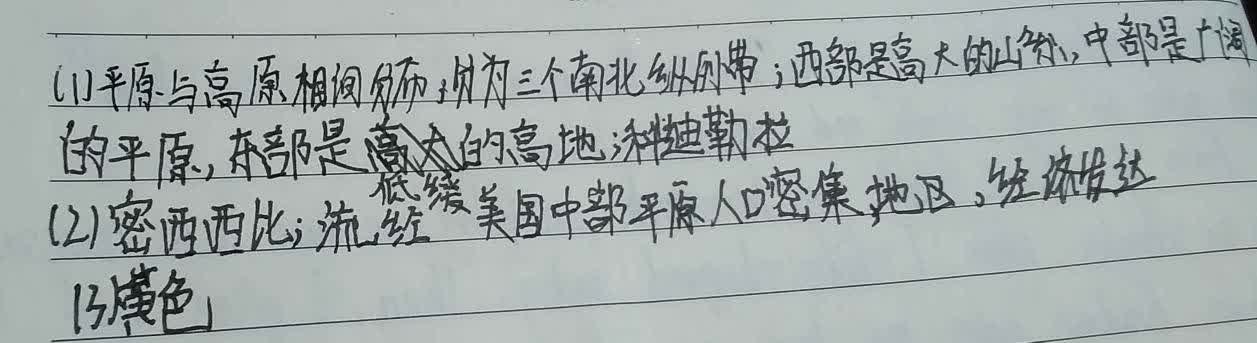 (1)平原与高原相间分布;分为三个南北纵列带;西部是高大的山系,中部是广阔
的平原,东部是高大的高地;科迪勒拉
低缓
(2)密西西比;流经美国中部平原人口密集地区,经济发达
(3)黄色